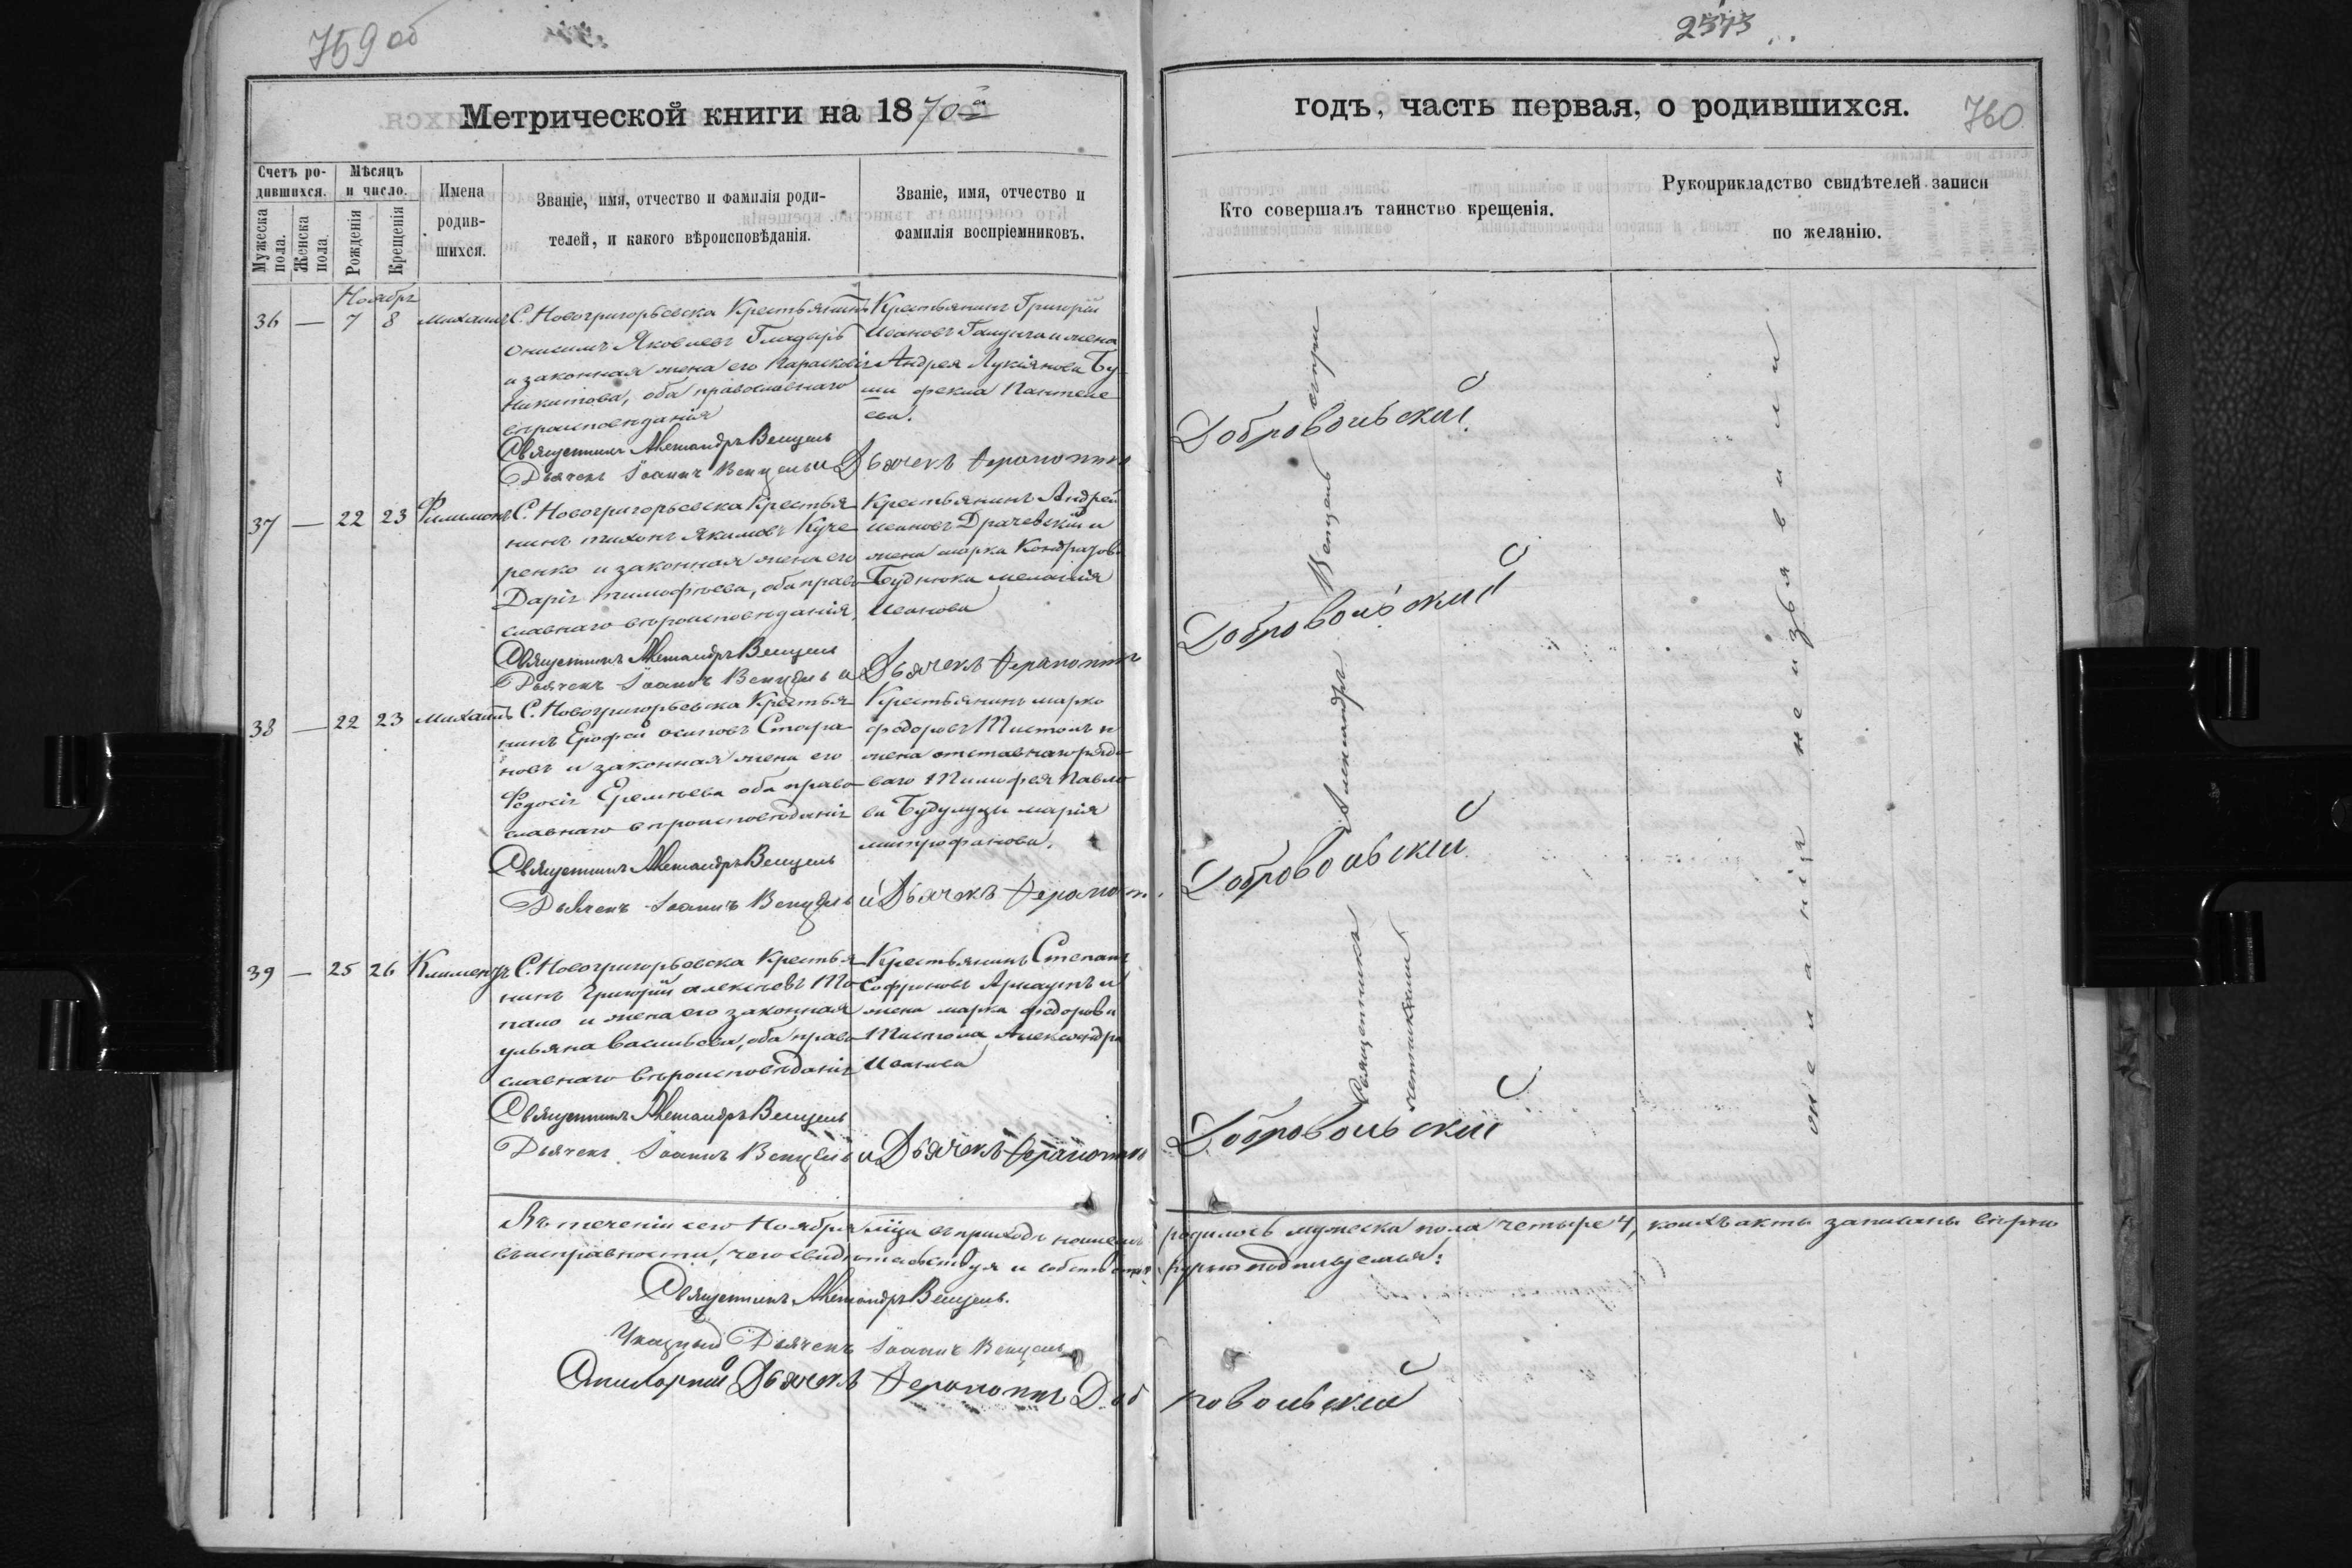 759 об
2373
Метрической книги на 1870й
годъ, часть первая, о родившихся.
760
Счетъ ро-
дившихся.
Мужеска
пола.
Женска
пола.
Мѣсяцъ
и число.
Рожденія
Крещенія
Имена
родив-
шихся.
Званіе, имя, отчество и фамилія роди-
телей, и какого вѣроисповѣданія.
Званіе, имя, отчество и
фамилія воспріемниковъ.
Кто совершалъ таинство крещенія.
Рукоприкладство свидѣтелей записи
по желанію.
Ноябрь
36 — 7 8 Михаилъ
С. Новогригорьевска Крестьянинъ
Онисимъ Яковлевъ Гнадыръ
и законная жена его Парасковія
Никитова, оба православнаго
вѣроисповѣданія
Крестьянинъ Григорій
Ивановъ и жена
Андрея Лукіянова Бу
ши Фекла Пантеле
ева.
Священникъ Александръ Венцель
Дьячекъ Іоаннъ Венцель и Дьячекъ Ферапонтъ
Добровольскій
37 — 22 23 Филимонъ
С. Новогригорьевска Крестья
нинъ Тихонъ Якимовъ Куче
ренко и законная жена его
Дарія Тимофѣева, оба право
славнаго вѣроисповѣданія,
Крестьянинъ Андрей
Ивановъ Драчевскій и
жена Марка Кондратова
Буднюка Меланія
Иванова
Священникъ Александръ Венцель
Дьячекъ Іоаннъ Венцель и Дьячекъ Ферапонтъ
Добровольскій
38 — 22 23 Михаилъ
С. Новогригорьевска Крестья
нинъ Ерофей Осиповъ Стафа
новъ и законная жена его
Федосія Еремѣева оба право
славнаго вѣроисповѣданія
Крестьянинъ Марко
Федоровъ Пистоль и
жена отставнаго рядо
ваго Тимофея Павло
ва Будулуцы Марія
Митрофанова.
Священникъ Александръ Венцель
Дьячекъ Іоаннъ Венцель и Дьячекъ Ферапонт.
Добровольскій
39 — 25 26 Климентъ
С. Новогригорьевска Крестья
нинъ Григорій Алексѣевъ То
пало и жена его законная
Ульяна Васильева, оба право
славнаго вѣроисповѣданія
Крестьянинъ Степанъ
Софроновъ Арнаутъ и
жена Марка Федорова
Пистола Александра
Иванова
Священникъ Александръ Венцель
Дьячекъ Іоаннъ Венцель и Дьячекъ Ферапонтъ
Добровольскій
Священникъ Александръ Венцель сопри
четниками
желанія не изъявили
Въ теченіи сего Ноября мѣца въ приходѣ нашемъ родилось мужеска пола четыре 4, коихъ акты записаны вѣрно
въ исправности, чего свидѣтельствуя и собственно ручно подписуемся:
Священникъ Александръ Венцель.
Указный Дьячекъ Іоаннъ Венцель
Дьячекъ Ферапонтъ Добровольскій